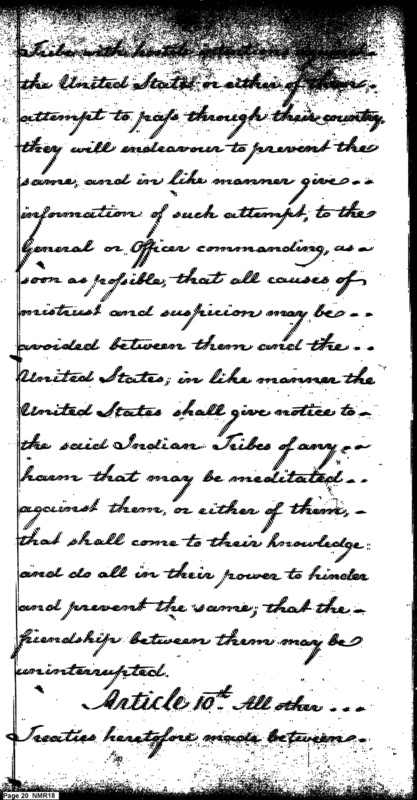 Tribe with hostile intentions against -
the United States or either of them, -
attempt to pass through their country,
they will endeavour to prevent the
same; and in like manner give - -
information of such attempt, to the
General or Officer commanding, as -
soon as possible, that all causes of
mistrust and suspicion may be - -
avoided between them and the - -
United States; in like manner the
United States shall give notice to -
the said Indian Tribes of any - -
harm that may be meditated - -
against them, or either of them, -
that shall come to their knowledge;
and do all in their power to hinder
and prevent the same; that the -
friendship between them may be
uninterrupted.
Article 10th All other - - -
Treaties heretofore made between -
Page 20 NMR18